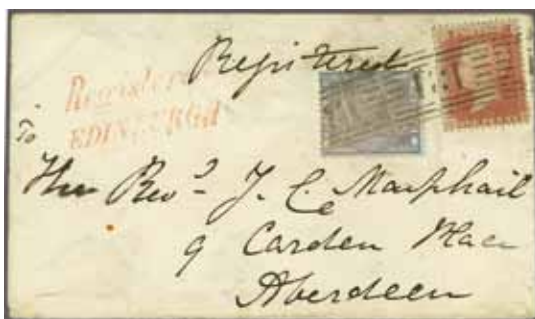 Registered
Registered
EDINBURGH
To
The Revd J. C. Macphail
9 Carden Place
Aberdeen